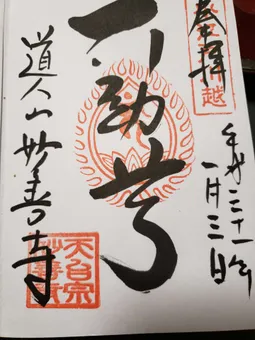 奉拝
川越
平成三十一年
一月三日
不動尊
道人山妙善寺
天台宗
妙善寺